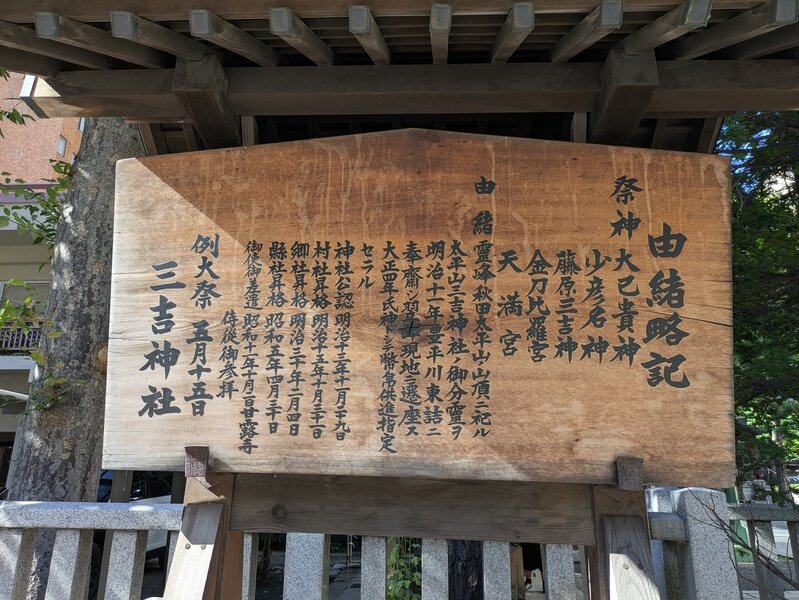 由緒略記
祭神 大己貴神
少彦名神
藤原三吉神
金刀比羅宮
天満宮
由緒 靈峰秋田太平山山頂ニ祀ル
太平山三吉神社ノ御分靈ヲ
明治十一年豊平川東詰ニ
奉齋シ翌 現地ニ遷座ス
大正四年氏神トシ幣帛供進指定
セラル
神社公認 明治十三年十一月廿九日
村社昇格 明治十三年十月三十日
郷社昇格 明治三十年二月四日
縣社昇格 昭和五年四月三十日
御使御差遣 昭和十一年十月二日甘露寺
侍従御参拝
例大祭 五月十五日
三吉神社